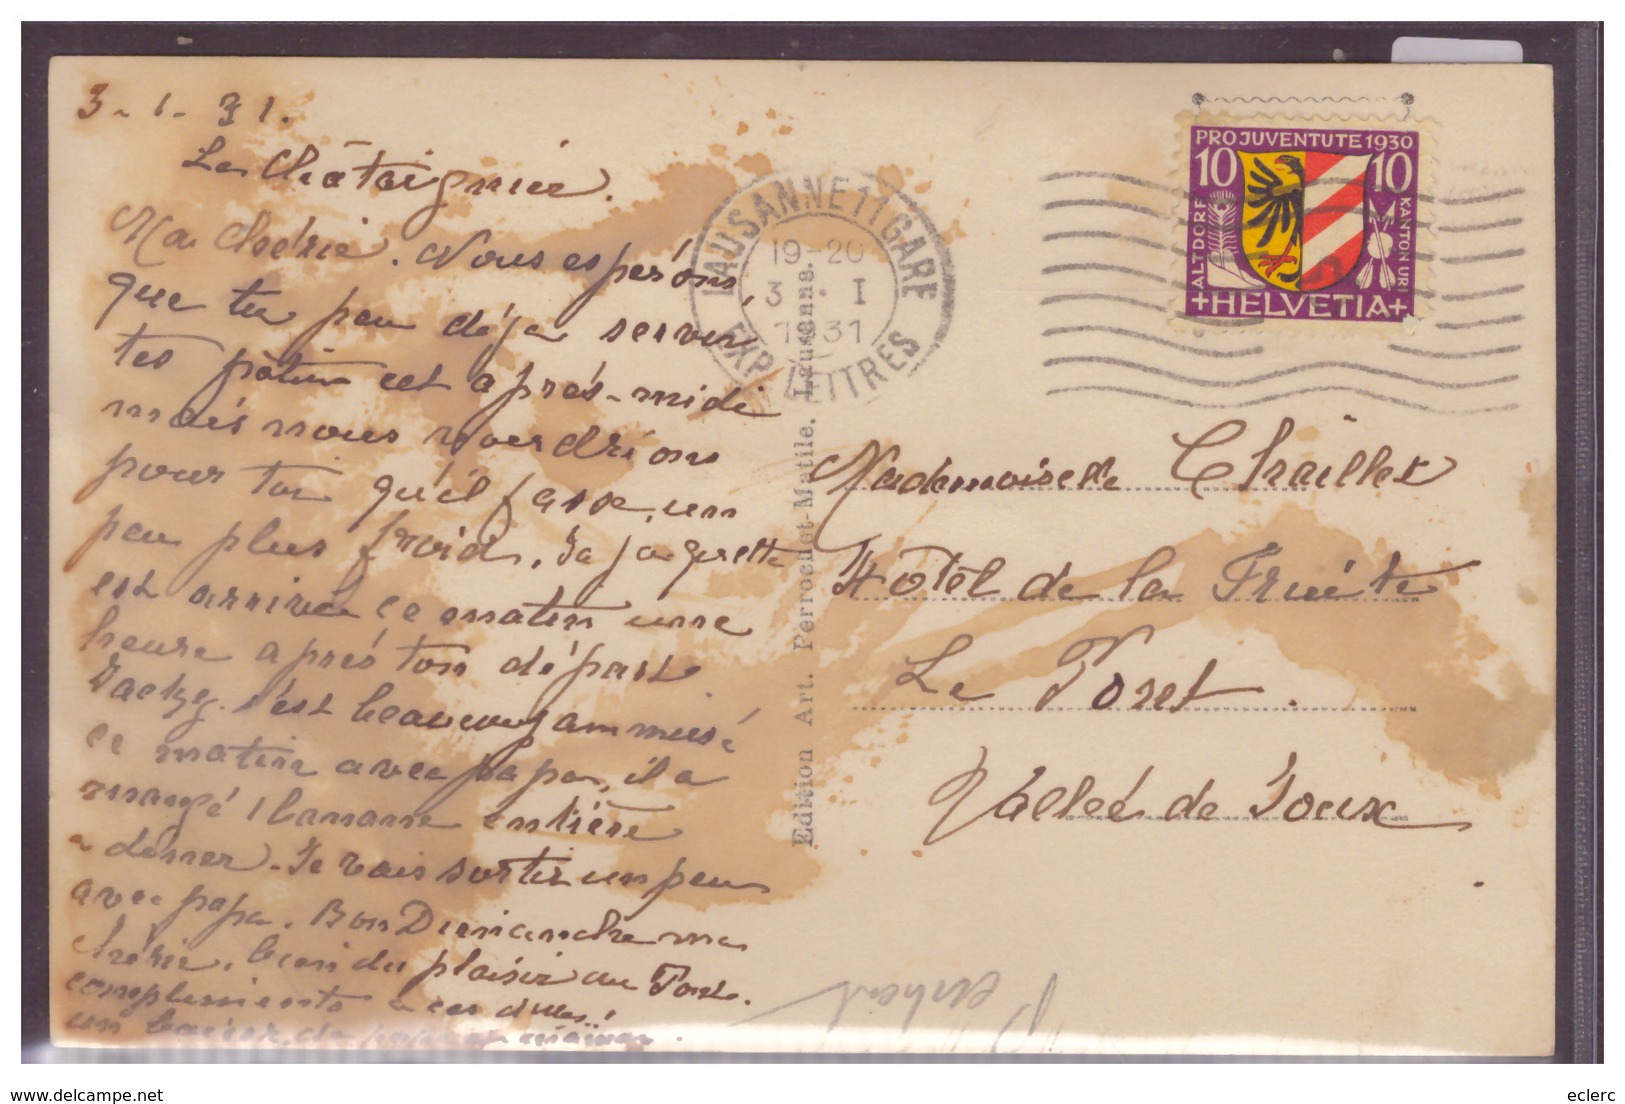 3-1-31.
La Châtaignier.
Ma chérie. Nous espérons,
que tu peu déja servir
tes patin cet après-midi
mais nous voudrions
pour toi qu'il fasse, un
peu plus froid. Ta jaquette
est arrivée ce matin une
heure après ton départ
Jacky s'est beaucoup ammusé
ce matin avec papa, il a
mangé 1 banane entière
a dîner. Je vais sortir un peu
avec papa. Bon Dimanche ma
chérie, bien du plaisir au Pont.
compliments a ces dlles.!
un baiser de papa et maman.
LAUSANNE 11 GARE
19-20
3 . I
1931
EXP. LETTRES
PRO JUVENTUTE 1930
10 10
ALTDORF
KANTON URI
+HELVETIA+
Edition Art. Perrochet-Matile. Lausanne.
Mademoiselle Chaillet
Hôtel de la Truite
Le Pont.
Vallée de Joux
www.delcampe.net
eclerc